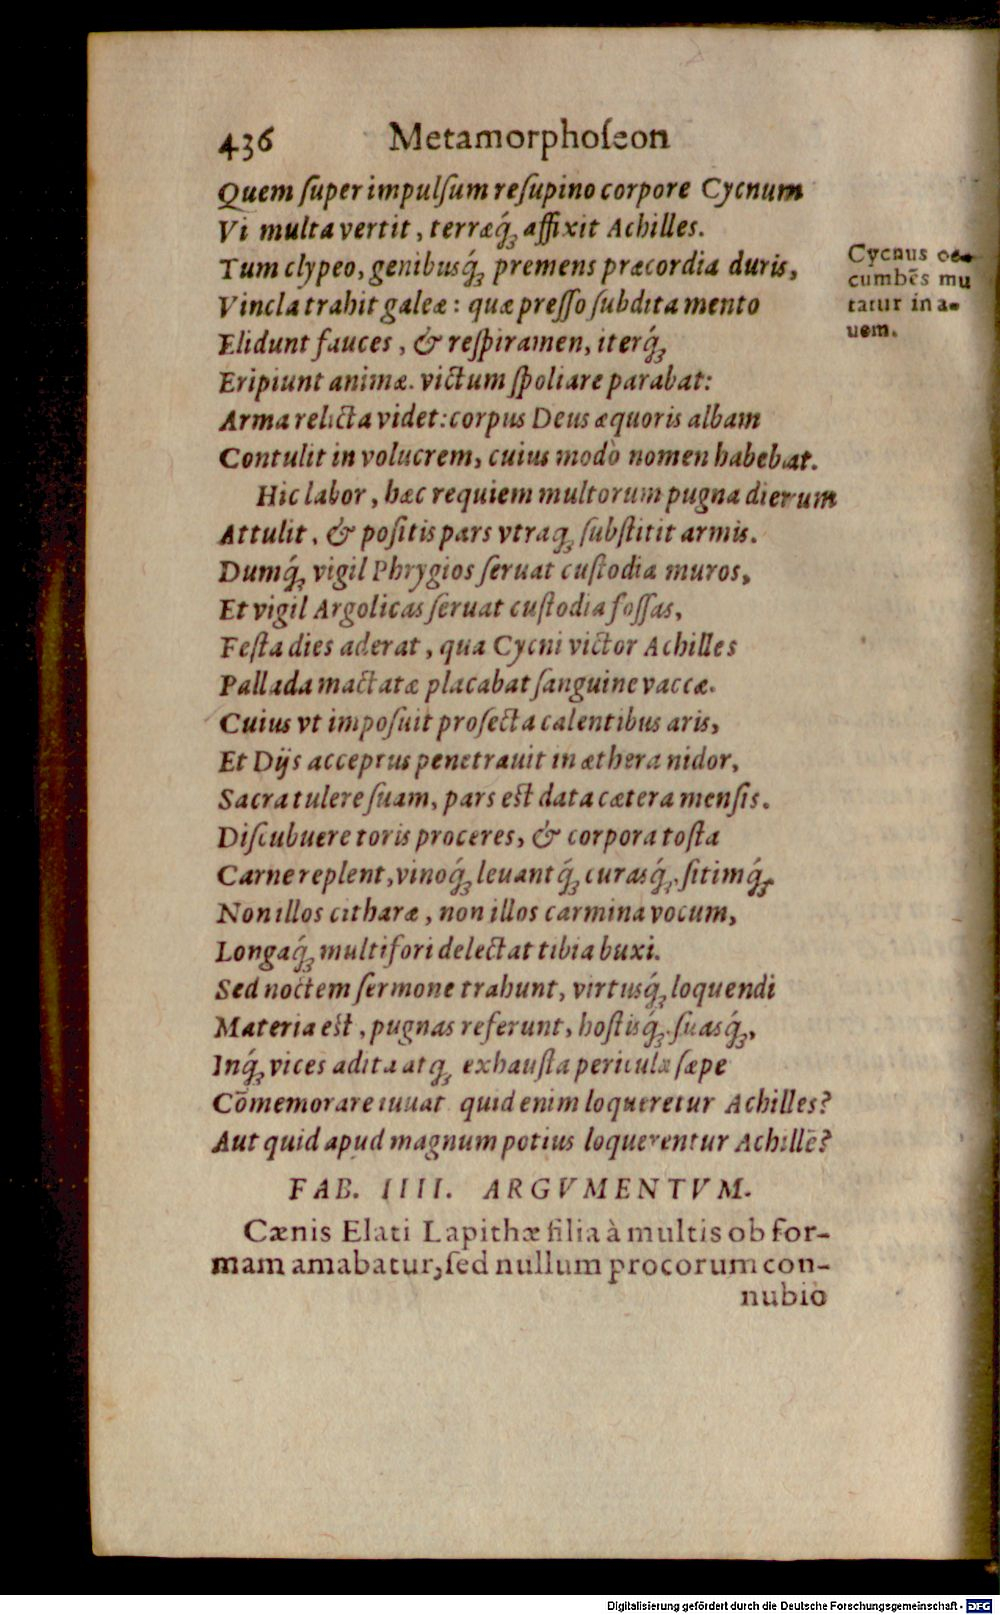 436 Metamorphoſeon
Quem ſuper impulſum reſupino corpore Cycnum
Vi multa vertit, terræq́; affixit Achilles.
Tum clypeo, genibusq́; premens præcordia duris,
Vincla trahit galeæ: quæ preſſo ſubdita mento
Elidunt fauces, & reſpiramen, iterq́;
Eripiunt animæ. victum ſpoliare parabat:
Arma relicta videt: corpus Deus æquoris albam
Contulit in volucrem, cuius modò nomen habebat.
Cycnus oc-
cumbēs mu
tatur in a-
uem.
Hic labor, hæc requiem multorum pugna dierum
Attulit, & poſitis pars vtraq; ſubſtitit armis.
Dumq́; vigil Phrygios ſeruat cuſtodia muros,
Et vigil Argolicas ſeruat cuſtodia foſſas,
Feſta dies aderat, qua Cycni victor Achilles
Pallada mactatæ placabat ſanguine vaccæ.
Cuius vt impoſuit proſecta calentibus aris,
Et Dijs acceptus penetrauit in æthera nidor,
Sacra tulere ſuam, pars est data cætera menſis.
Diſcubuere toris proceres, & corpora toſta
Carne replent, vinoq́; leuantq́; curasq́;, ſitimq́;.
Non illos citharæ, non illos carmina vocum,
Longaq́; multifori delectat tibia buxi.
Sed noctem ſermone trahunt, virtusq́; loquendi
Materia est, pugnas referunt, hoſtisq́;, ſuasq́;,
Inq́; vices adita atq; exhauſta pericula ſæpe
Cōmemorare iuuat quid enim loqueretur Achilles?
Aut quid apud magnum potius loquerentur Achillē?
FAB. IIII. ARGVMENTVM.
Cænis Elati Lapithæ filia à multis ob for-
mam amabatur, ſed nullum procorum con-
nubio
Digitalisierung gefördert durch die Deutsche Forschungsgemeinschaft - DFG